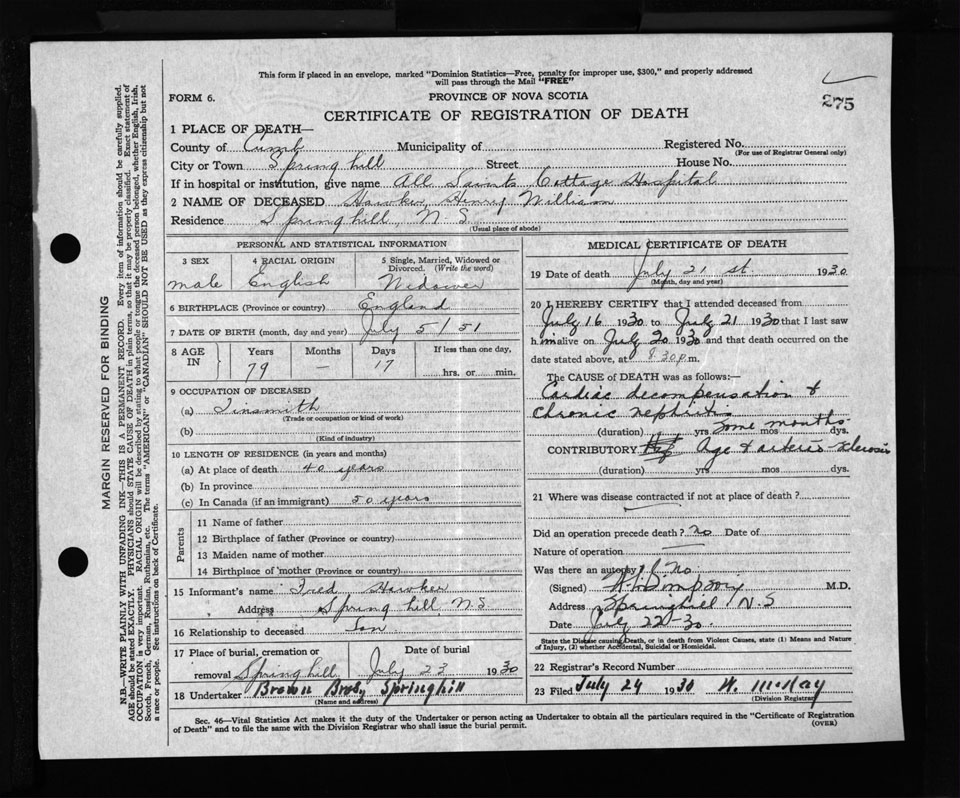 This form if placed in an envelope, marked "Dominion Statistics—Free, penalty for improper use, $300," and properly addressed
will pass through the Mail "FREE"
FORM 6.
PROVINCE OF NOVA SCOTIA
275
CERTIFICATE OF REGISTRATION OF DEATH
1 PLACE OF DEATH—
County of Cumb Municipality of Registered No.
(For use of Registrar General only)
City or Town Springhill Street House No.
If in hospital or institution, give name All Saints Cottage Hospital
2 NAME OF DECEASED Hawker Henry William
Residence Springhill N.S.
(Usual place of abode)
PERSONAL AND STATISTICAL INFORMATION
3 SEX 4 RACIAL ORIGIN 5 Single, Married, Widowed or
Divorced. (Write the word)
male English Widower
6 BIRTHPLACE (Province or country) England
7 DATE OF BIRTH (month, day and year) July 5/51
8 AGE IN Years Months Days If less than one day,
79 — 17 hrs. or min.
9 OCCUPATION OF DECEASED
(a) Tinsmith
(Trade or occupation or kind of work)
(b)
(Kind of industry)
10 LENGTH OF RESIDENCE (in years and months)
(a) At place of death 40 years
(b) In province
(c) In Canada (if an immigrant) 50 years
Parents
11 Name of father
12 Birthplace of father (Province or country)
13 Maiden name of mother
14 Birthplace of mother (Province or country)
15 Informant's name Fred Hawker
Address Springhill N.S.
16 Relationship to deceased Son
17 Place of burial, cremation or Date of burial
removal Springhill July 23 1930
18 Undertaker Brown Bros, Springhill
(Name and address)
MEDICAL CERTIFICATE OF DEATH
19 Date of death July 21 st. 1930
(Month, day and year)
20 I HEREBY CERTIFY that I attended deceased from
July 16 1930 to July 21 1930 that I last saw
him alive on July 20 1930 and that death occurred on the
date stated above, at 8.30 p.m.
The CAUSE of DEATH was as follows:—
Cardiac decompensation &
Chronic nephritis
(duration) yrs some months mos dys.
CONTRIBUTORY Age & arterio sclerosis
(duration) yrs. mos. dys.
21 Where was disease contracted if not at place of death?
Did an operation precede death? no Date of
Nature of operation —
Was there an autopsy? No
(Signed) Simpson M.D.
Address Springhill N.S
Date July 22-30.
State the Disease causing Death, or in death from Violent Causes, state (1) Means and Nature
of Injury, (2) whether Accidental, Suicidal or Homicidal.
22 Registrar's Record Number
23 Filed July 24 1930 W. McKay
(Division Registrar)
Sec. 46—Vital Statistics Act makes it the duty of the Undertaker or person acting as Undertaker to obtain all the particulars required in the "Certificate of Registration
of Death" and to file the same with the Division Registrar who shall issue the burial permit.
(OVER)
MARGIN RESERVED FOR BINDING
N.B.—WRITE PLAINLY WITH UNFADING INK—THIS IS A PERMANENT RECORD. Every item of information should be carefully supplied.
AGE should be stated EXACTLY. PHYSICIANS should STATE CAUSE OF DEATH in plain terms, so that it may be properly classified. Exact statement of
OCCUPATION is very important. RACIAL ORIGIN will be described by stating to what people or tongue the deceased person belonged, whether English, Irish,
Scotch, French, German, Russian, Ruthenian, etc. The terms "AMERICAN" or "CANADIAN" SHOULD NOT BE USED as they express citizenship but not
a race or people. See instructions on back of Certificate.